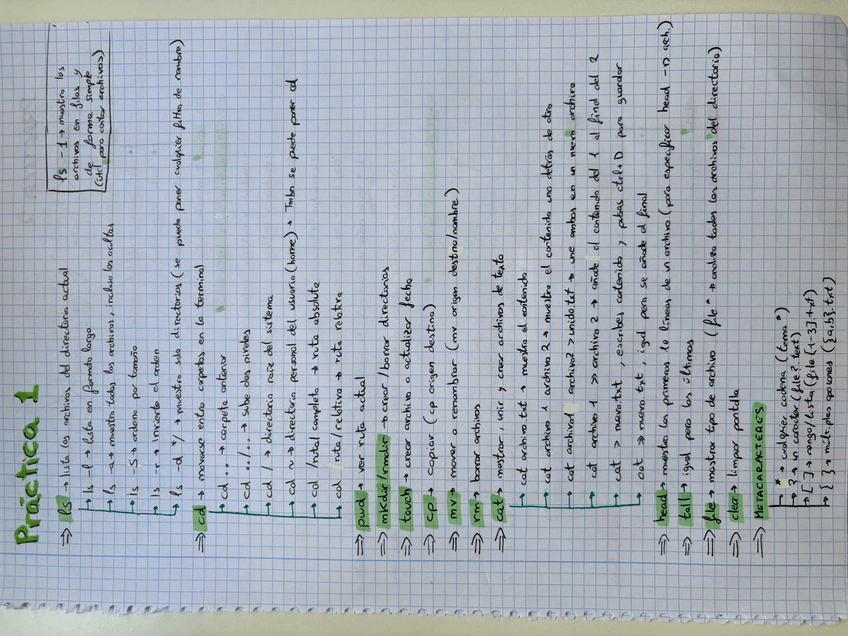 Práctica 1
⇒ ls → lista los archivos del directorio actual
→ ls -l → lista en formato largo
→ ls -a → muestra todos los archivos, incluso los ocultos
→ ls -S → ordena por tamaño
→ ls -r → invierte el orden
→ ls -d */ → muestra solo directorios (se puede poner cualquier filtro de nombre)
ls -1 → muestra los
archivos en filas y
de forma simple
(útil para contar archivos)
⇒ cd → moverse entre carpetas en la terminal
→ cd .. → carpeta anterior
→ cd ../.. → sube dos niveles
→ cd / → directorio raíz del sistema
→ cd ~ → directorio personal del usuario (home) * Tmbn se puede poner cd
→ cd /total completo → ruta absoluta
→ cd ruta/relativa → ruta relativa
⇒ pwd → ver ruta actual
⇒ mkdir/rmdir → crear/borrar directorios
⇒ touch → crear archivo o actualizar fecha
⇒ cp → copiar (cp origen destino)
⇒ mv → mover o renombrar (mv origen destino/nombre)
⇒ rm → borrar archivos
⇒ cat → mostrar, unir y crear archivos de texto
→ cat archivo.txt → muestra el contenido
→ cat archivo 1 archivo 2 → muestra el contenido uno detrás de otro
→ cat archivo1 archivo2 > unido.txt → une ambos en un nuevo archivo
→ cat archivo 1 >> archivo 2 → añade el contenido del 1 al final del 2
→ cat > nuevo.txt, escribes contenido y pulsas ctrl+D para guardar
→ cat >> nuevo.txt, igual pero se añade al final
⇒ head → muestra las primeras 10 líneas de un archivo (para especificar head -n arch.)
⇒ tail → igual para las últimas
⇒ file → mostrar tipo de archivo (file * → analiza todos los archivos del directorio)
⇒ clear → limpiar pantalla
⇒ METACARACTERES
→ * → cualquier cadena (tema*)
→ ? → un carácter (file?.text)
→ [ ] → rango/lista (file[1-3].txt)
→ { } → múltiples opciones ({a,b}.txt)